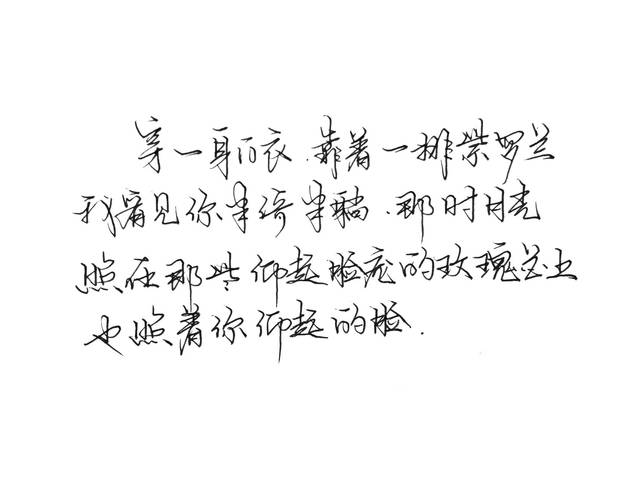 穿一身白衣.靠着一排紫罗兰
我看见你半倚半躺.那时月亮
照在那些仰起脸庞的玫瑰花上
也照着你仰起的脸.